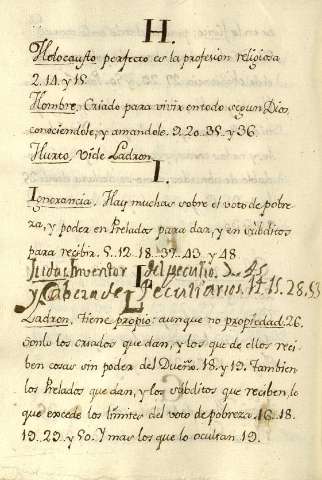 H.
Holocausto perfecto es la profesion religiosa
2. 14. y 15.
Hombre, Criado para vivir entodo segun Dios,
conociendole, y amandole. 2. 20. 35. y 36.
Hurto, Vide Ladron.
I.
Ignorancia. Hay muchas sobre el voto de pobre-
za, y poder en Prelados para dar, y en subditos
para recibir. 5. 12. 18. 37. 43. y 48
Judas Inventor del peculio. 2. 45
y Cabeza de Peculiarios. 14. 15. 28. 53
L
Ladron, tiene propio: aunque no propiedad. 26.
Sonlo los criados que dan, y los que de ellos reci-
ben cosas sin poder del Dueño. 18. y 19. Tambien
los Prelados que dan, y los subditos que reciben, lo
que excede los limites del voto de pobreza. 16. 18.
19. 29. y 50. Y mas los que lo ocultan 19.